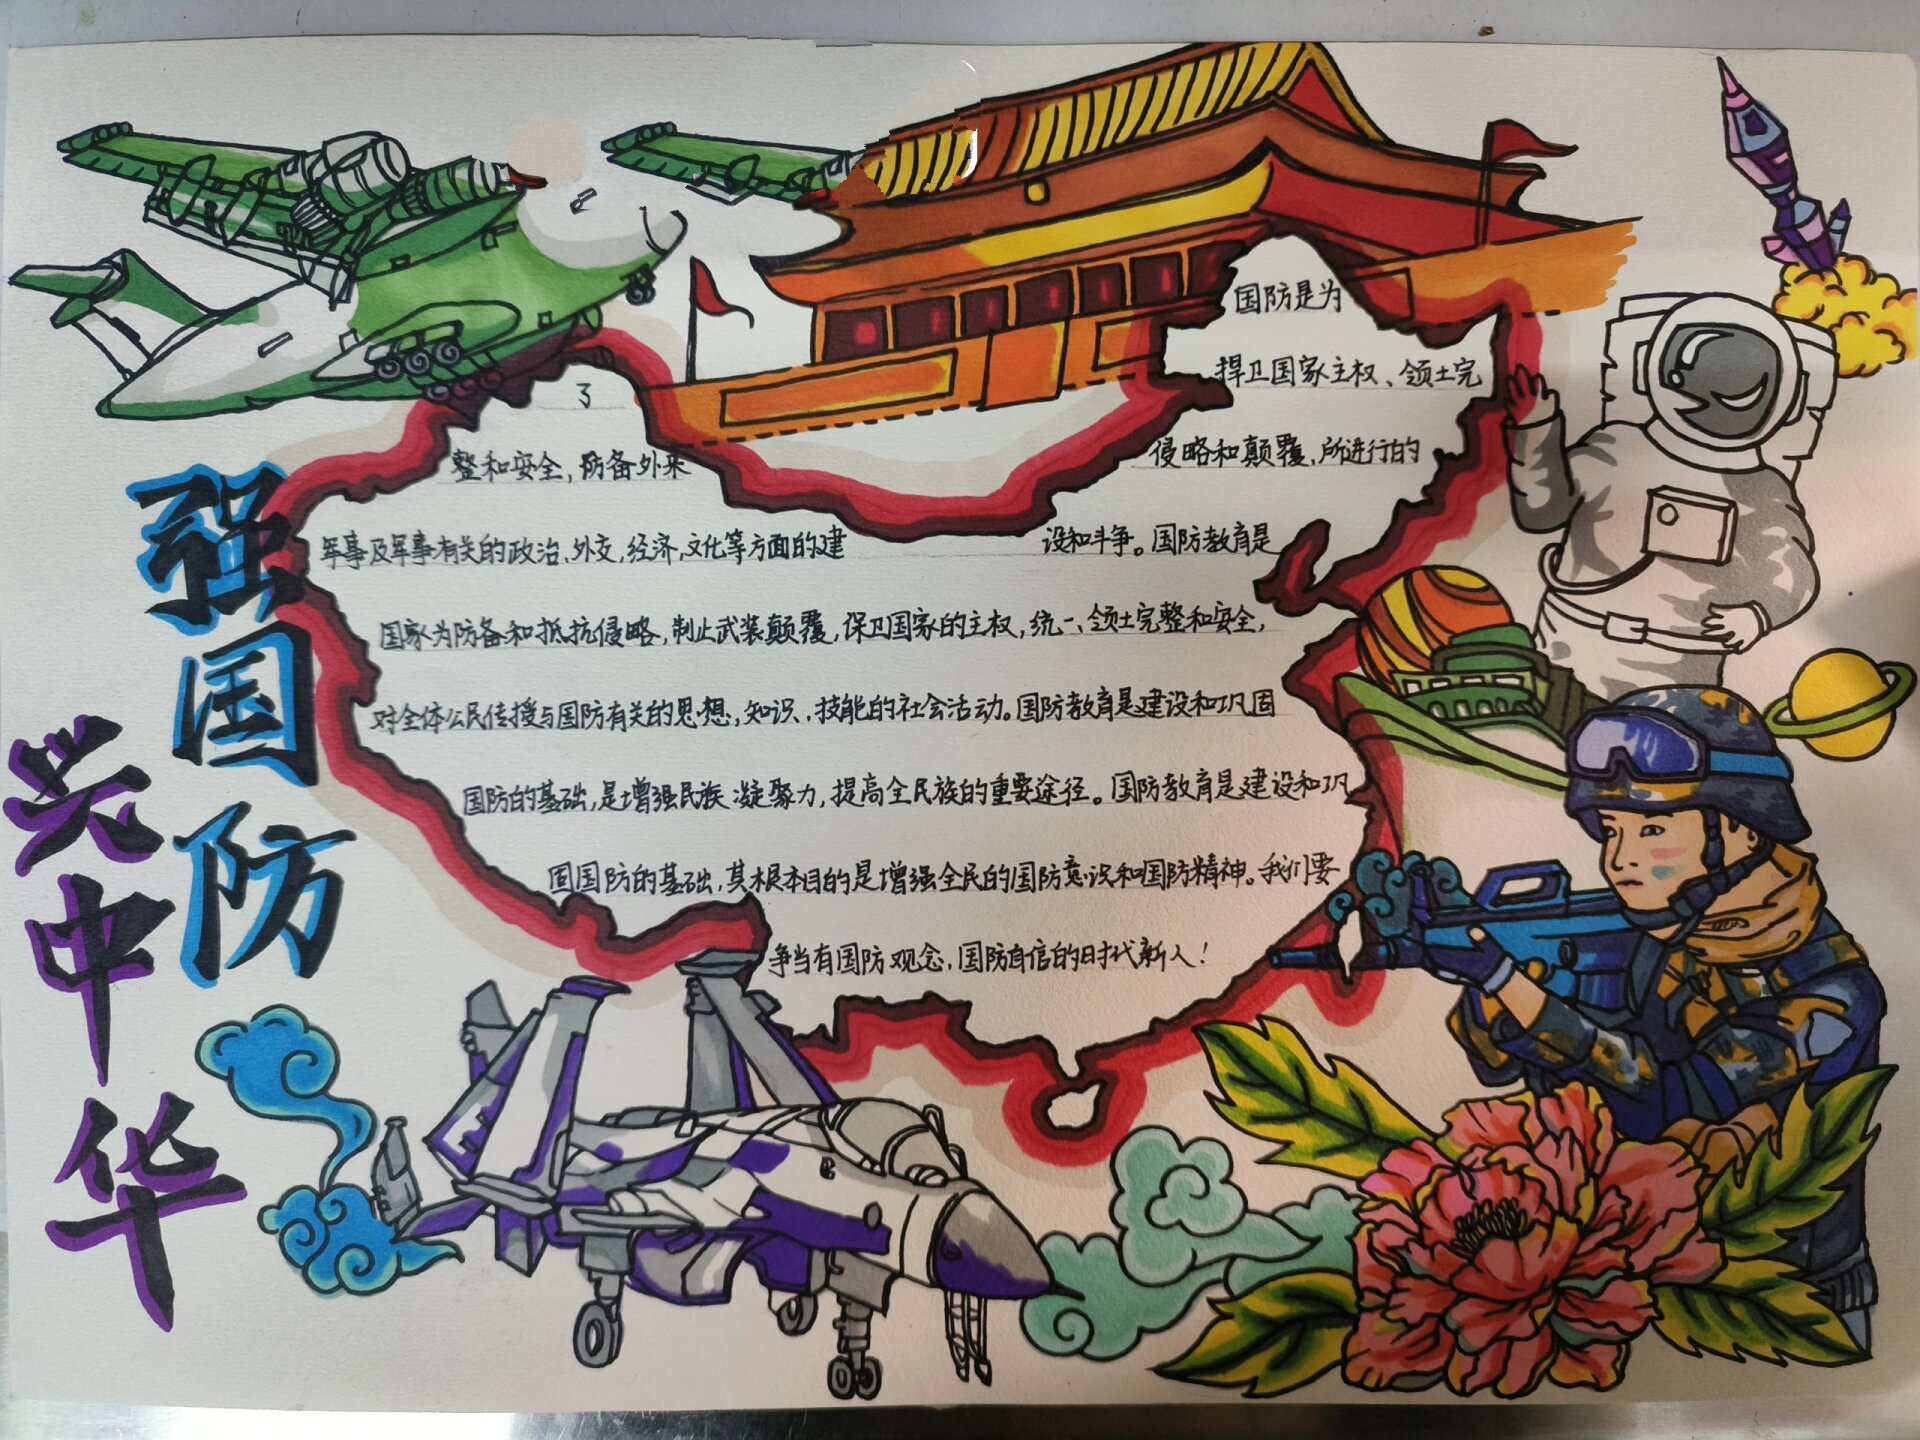 强国防
兴中华
国防是为
了
捍卫国家主权、领土完
整和安全,防备外来
侵略和颠覆,所进行的
军事及军事有关的政治、外交,经济,文化等方面的建
设和斗争。国防教育是
国家为防备和抵抗侵略,制止武装颠覆,保卫国家的主权,统一、领土完整和安全,
对全体公民传授与国防有关的思想,知识、技能的社会活动。国防教育是建设和巩固
国防的基础,是增强民族凝聚力,提高全民族的重要途径。国防教育是建设和巩
固国防的基础,其根本目的是增强全民的国防意识和国防精神。我们要
争当有国防观念,国防自信的时代新人!